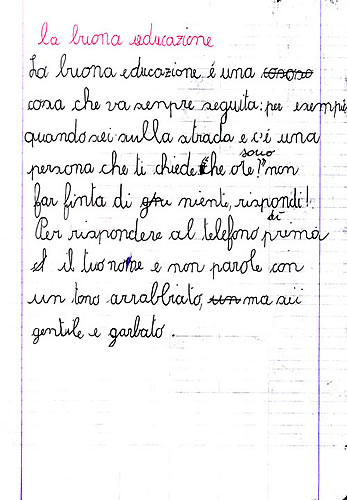 la buona educazione
La buona educazione é una cososo
cosa che va senpre seguita: per esempio
quando sei sulla strada e c'é una
persona che ti chiede "che ore sono?" non
far finta di nienti, rispondi!
Per rispondere al telefono prima di
il tuo nome e non parole con
un tono arrabbiato, un ma sii
gentile e garbato.